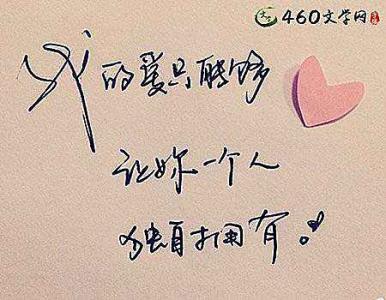 460文学网
我的爱只能够
让妳一个人
独自拥有